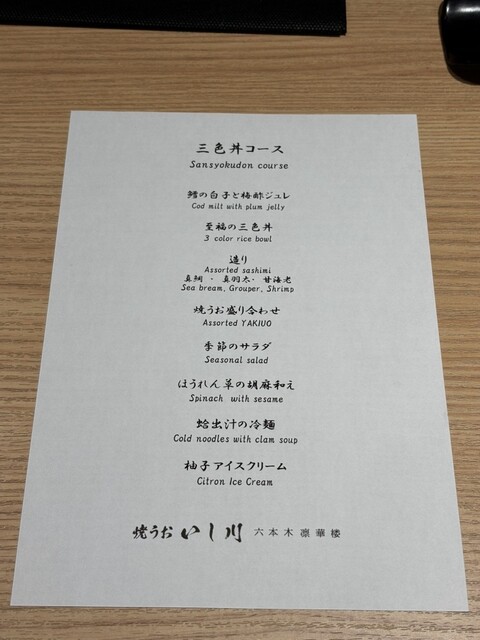 三色丼コース
Sansyokudon course
鱈の白子と梅酢ジュレ
Cod milt with plum jelly
至福の三色丼
3 color rice bowl
造り
Assorted sashimi
真鯛・真羽太・甘海老
Sea bream, Grouper, Shrimp
焼うお盛り合わせ
Assorted YAKIUO
季節のサラダ
Seasonal salad
ほうれん草の胡麻和え
Spinach with sesame
蛤出汁の冷麺
Cold noodles with clam soup
柚子アイスクリーム
Citron Ice Cream
焼うお いし川 六本木凛華楼